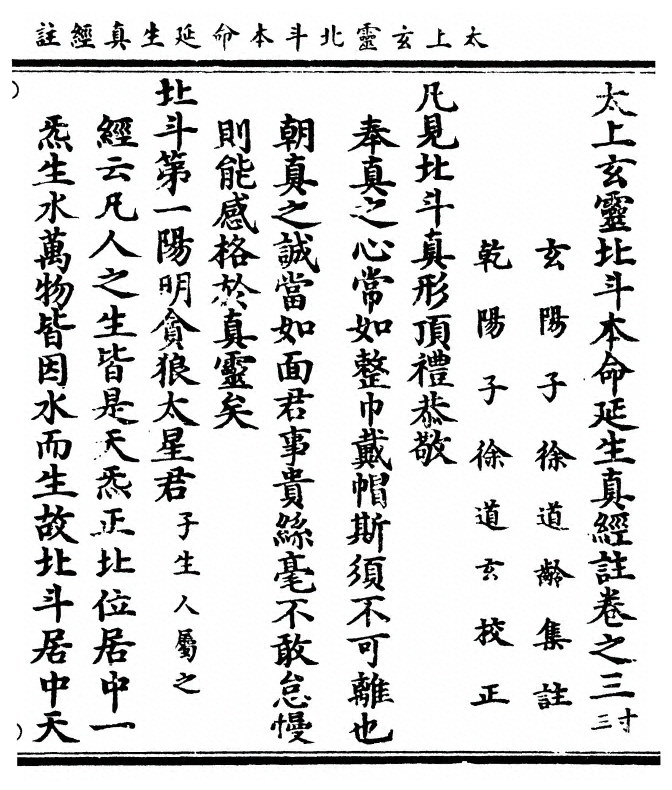 太上玄靈北斗本命延生真經註
太上玄靈北斗本命延生真經註卷之三 寸三
玄陽子徐道齡集註
乾陽子徐道玄挍正
凡見北斗真形頂禮恭敬
奉真之心常如整巾戴帽斯須不可離也
朝真之誠當如面君事貴絲毫不敢怠慢
則能感格於真靈矣
北斗第一陽明貪狼太星君 子生人屬之
經云凡人之生皆是天炁正北位居中一
炁生水萬物皆因水而生故北斗居中天